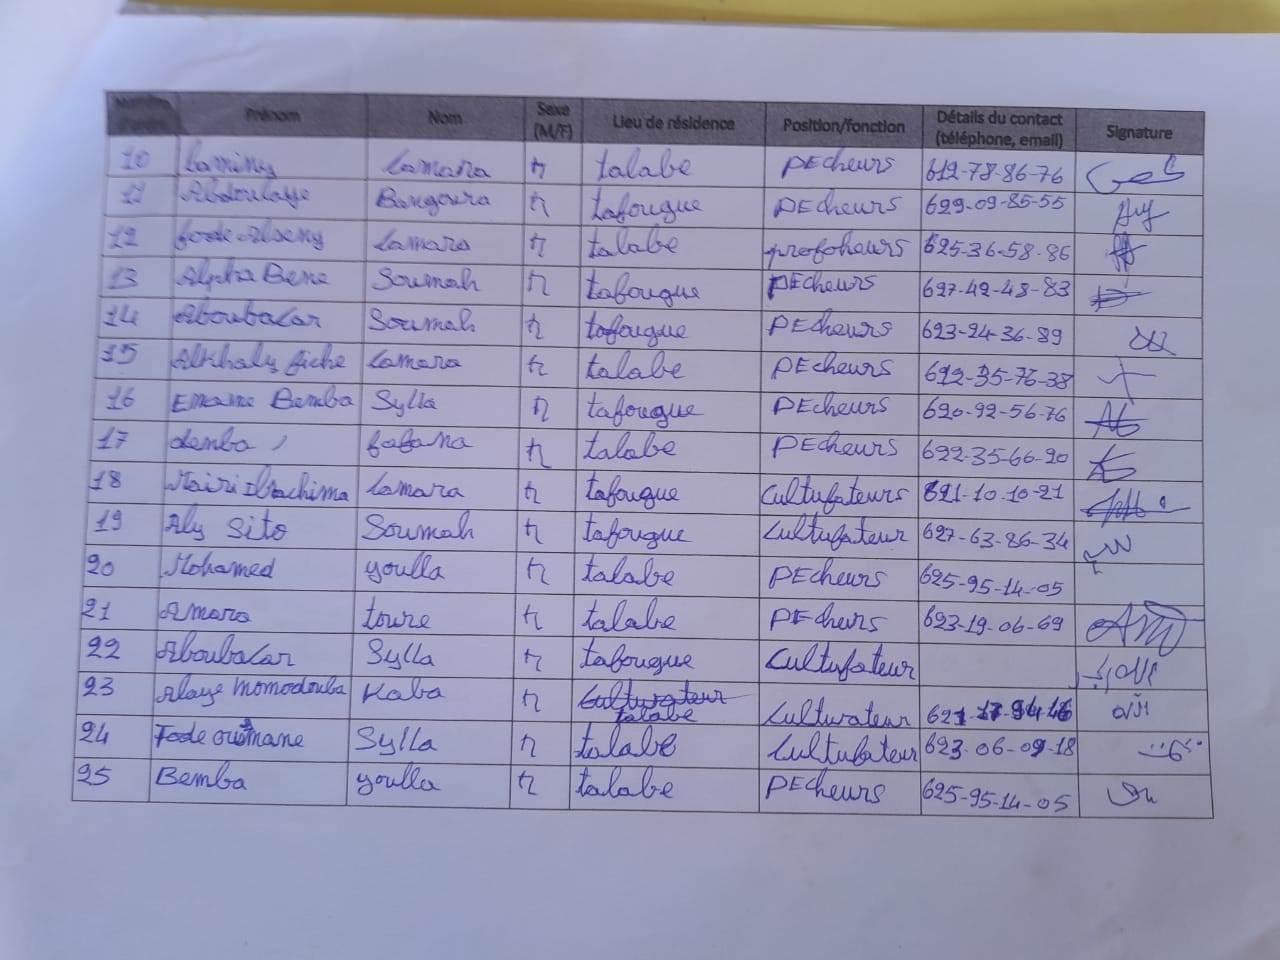 Prénom Nom Sexe (M/F) Lieu de résidence Position/fonction Détails du contact (téléphone, email) Signature
10 Laminy Camara M talabe PEcheurs 612-78-86-76
11 Abdoulaye Bangoura M tafougue PEcheurs 629-09-85-55
12 fode Alseny Camara M talabe 625-36-58-86
13 Alpha Bene Soumah M tafougue PEcheurs 627-42-48-83
14 Aboubacar Soumah M tafougue PEcheurs 623-24-36-89
15 Alkhaly fiche Camara M talabe PEcheurs 612-35-76-38
16 Emane Bemba Sylla M tafougue PEcheurs 620-92-56-76
17 demba fofana M talabe PEcheurs 622-35-66-20
18 Camara M tafougue Cultufateurs 621-10-10-21
19 Aly Sito Soumah M tafougue Cultufateur 627-63-86-34
20 Mohamed youlla M talabe PEcheurs 625-95-14-05
21 Amara toure M talabe PEcheurs 623-19-06-69
22 Aboubacar Sylla M tafougue Cultufateur
23 Alaye Momodouba Kaba M talabe Cultuvateur
24 Fode ousmane Sylla M talabe Cultufateur 623-06-09-18
25 Bemba youlla M talabe PEcheurs 625-95-14-05